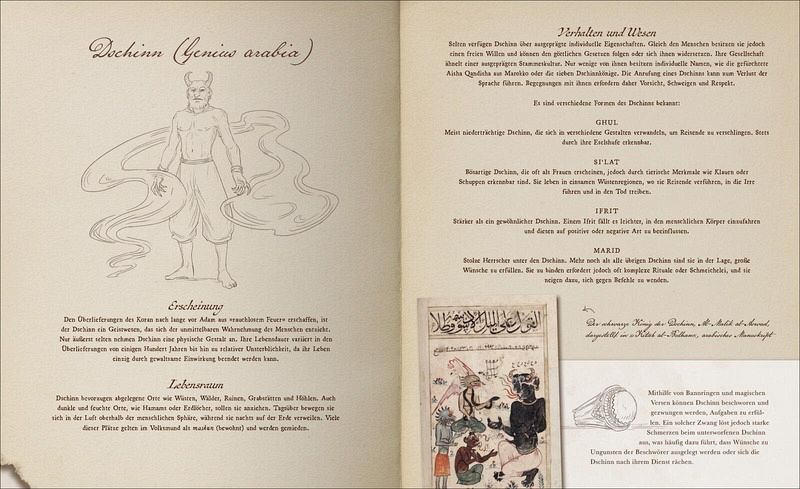 Dschinn (Genius arabia)
Erscheinung
Den Überlieferungen des Koran nach lange vor Adam aus »rauchlosem Feuer« erschaffen, ist
der Dschinn ein Geistwesen, das sich der unmittelbaren Wahrnehmung des Menschen entzieht.
Nur äußerst selten nehmen Dschinn eine physische Gestalt an. Ihre Lebensdauer variiert in den
Überlieferungen von einigen Hundert Jahren bis hin zu relativer Unsterblichkeit, da ihr Leben
einzig durch gewaltsame Einwirkung beendet werden kann.
Lebensraum
Dschinn bevorzugen abgelegene Orte wie Wüsten, Wälder, Ruinen, Grabstätten und Höhlen. Auch
dunkle und feuchte Orte, wie Hamams oder Erdlöcher, sollen sie anziehen. Tagsüber bewegen sie
sich in der Luft oberhalb der menschlichen Sphäre, während sie nachts auf der Erde verweilen. Viele
dieser Plätze gelten im Volksmund als maskun (bewohnt) und werden gemieden.
Verhalten und Wesen
Selten verfügen Dschinn über ausgeprägte individuelle Eigenschaften. Gleich den Menschen besitzen sie jedoch
einen freien Willen und können den göttlichen Gesetzen folgen oder sich ihnen widersetzen. Ihre Gesellschaft
ähnelt einer ausgeprägten Stammeskultur. Nur wenige von ihnen besitzen individuelle Namen, wie die gefürchtete
Aisha Qandisha aus Marokko oder die sieben Dschinnkönige. Die Anrufung eines Dschinns kann zum Verlust der
Sprache führen. Begegnungen mit ihnen erfordern daher Vorsicht, Schweigen und Respekt.
Es sind verschiedene Formen des Dschinns bekannt:
GHUL
Meist niederträchtige Dschinn, die sich in verschiedene Gestalten verwandeln, um Reisende zu verschlingen. Stets
durch ihre Eselshufe erkennbar.
SI'LAT
Bösartige Dschinn, die oft als Frauen erscheinen, jedoch durch tierische Merkmale wie Klauen oder
Schuppen erkennbar sind. Sie leben in einsamen Wüstenregionen, wo sie Reisende verführen, in die Irre
führen und in den Tod treiben.
IFRIT
Stärker als ein gewöhnlicher Dschinn. Einem Ifrit fällt es leichter, in den menschlichen Körper einzufahren
und diesen auf positive oder negative Art zu beeinflussen.
MARID
Stolze Herrscher unter den Dschinn. Mehr noch als alle übrigen Dschinn sind sie in der Lage, große
Wünsche zu erfüllen. Sie zu binden erfordert jedoch oft komplexe Rituale oder Schmeichelei, und sie
neigen dazu, sich gegen Befehle zu wenden.
Der schwarze König der Dschinn, Al-Malik al-Aswad,
dargestellt in » Kitab al-Bulhan«, arabisches Manuskript
Mithilfe von Bannringen und magischen
Versen können Dschinn beschworen und
gezwungen werden, Aufgaben zu erfül-
len. Ein solcher Zwang löst jedoch starke
Schmerzen beim unterworfenen Dschinn
aus, was häufig dazu führt, dass Wünsche zu
Ungunsten der Beschwörer ausgelegt werden oder sich die
Dschinn nach ihrem Dienst rächen.